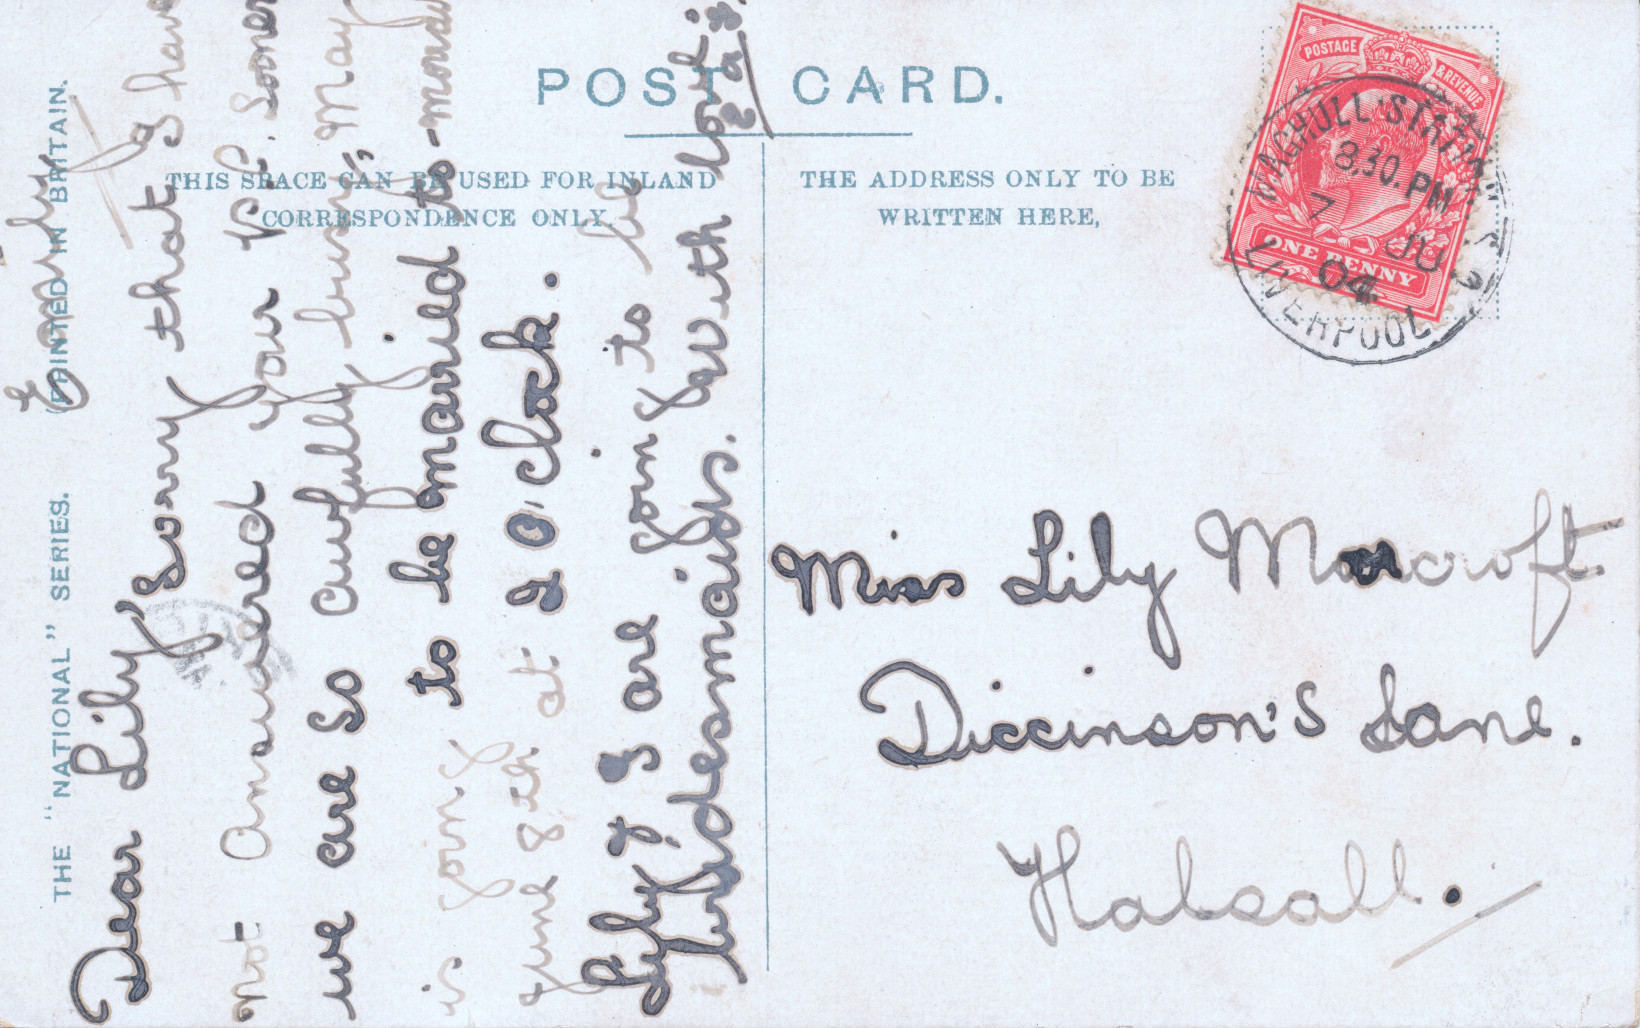 POST CARD.
THIS SPACE CAN BE USED FOR INLAND
CORRESPONDENCE ONLY.
THE ADDRESS ONLY TO BE
WRITTEN HERE,
THE "NATIONAL" SERIES.
(PRINTED IN BRITAIN.
POSTAGE & REVENUE
ONE PENNY
MAGHULL STATION
8.30. PM
7 JU
04
LIVERPOOL
Dear Lily Sorry that I have
not answered your P.C. sooner
we are so awfully busy, May
is going to be married to-morrow
June 8th at 2 O'clock.
Lily & I are goin to be
bridesmaids. Luv with lout
Emily
Miss Lily Marcroft.
Diccinson's Lane.
Halsall.